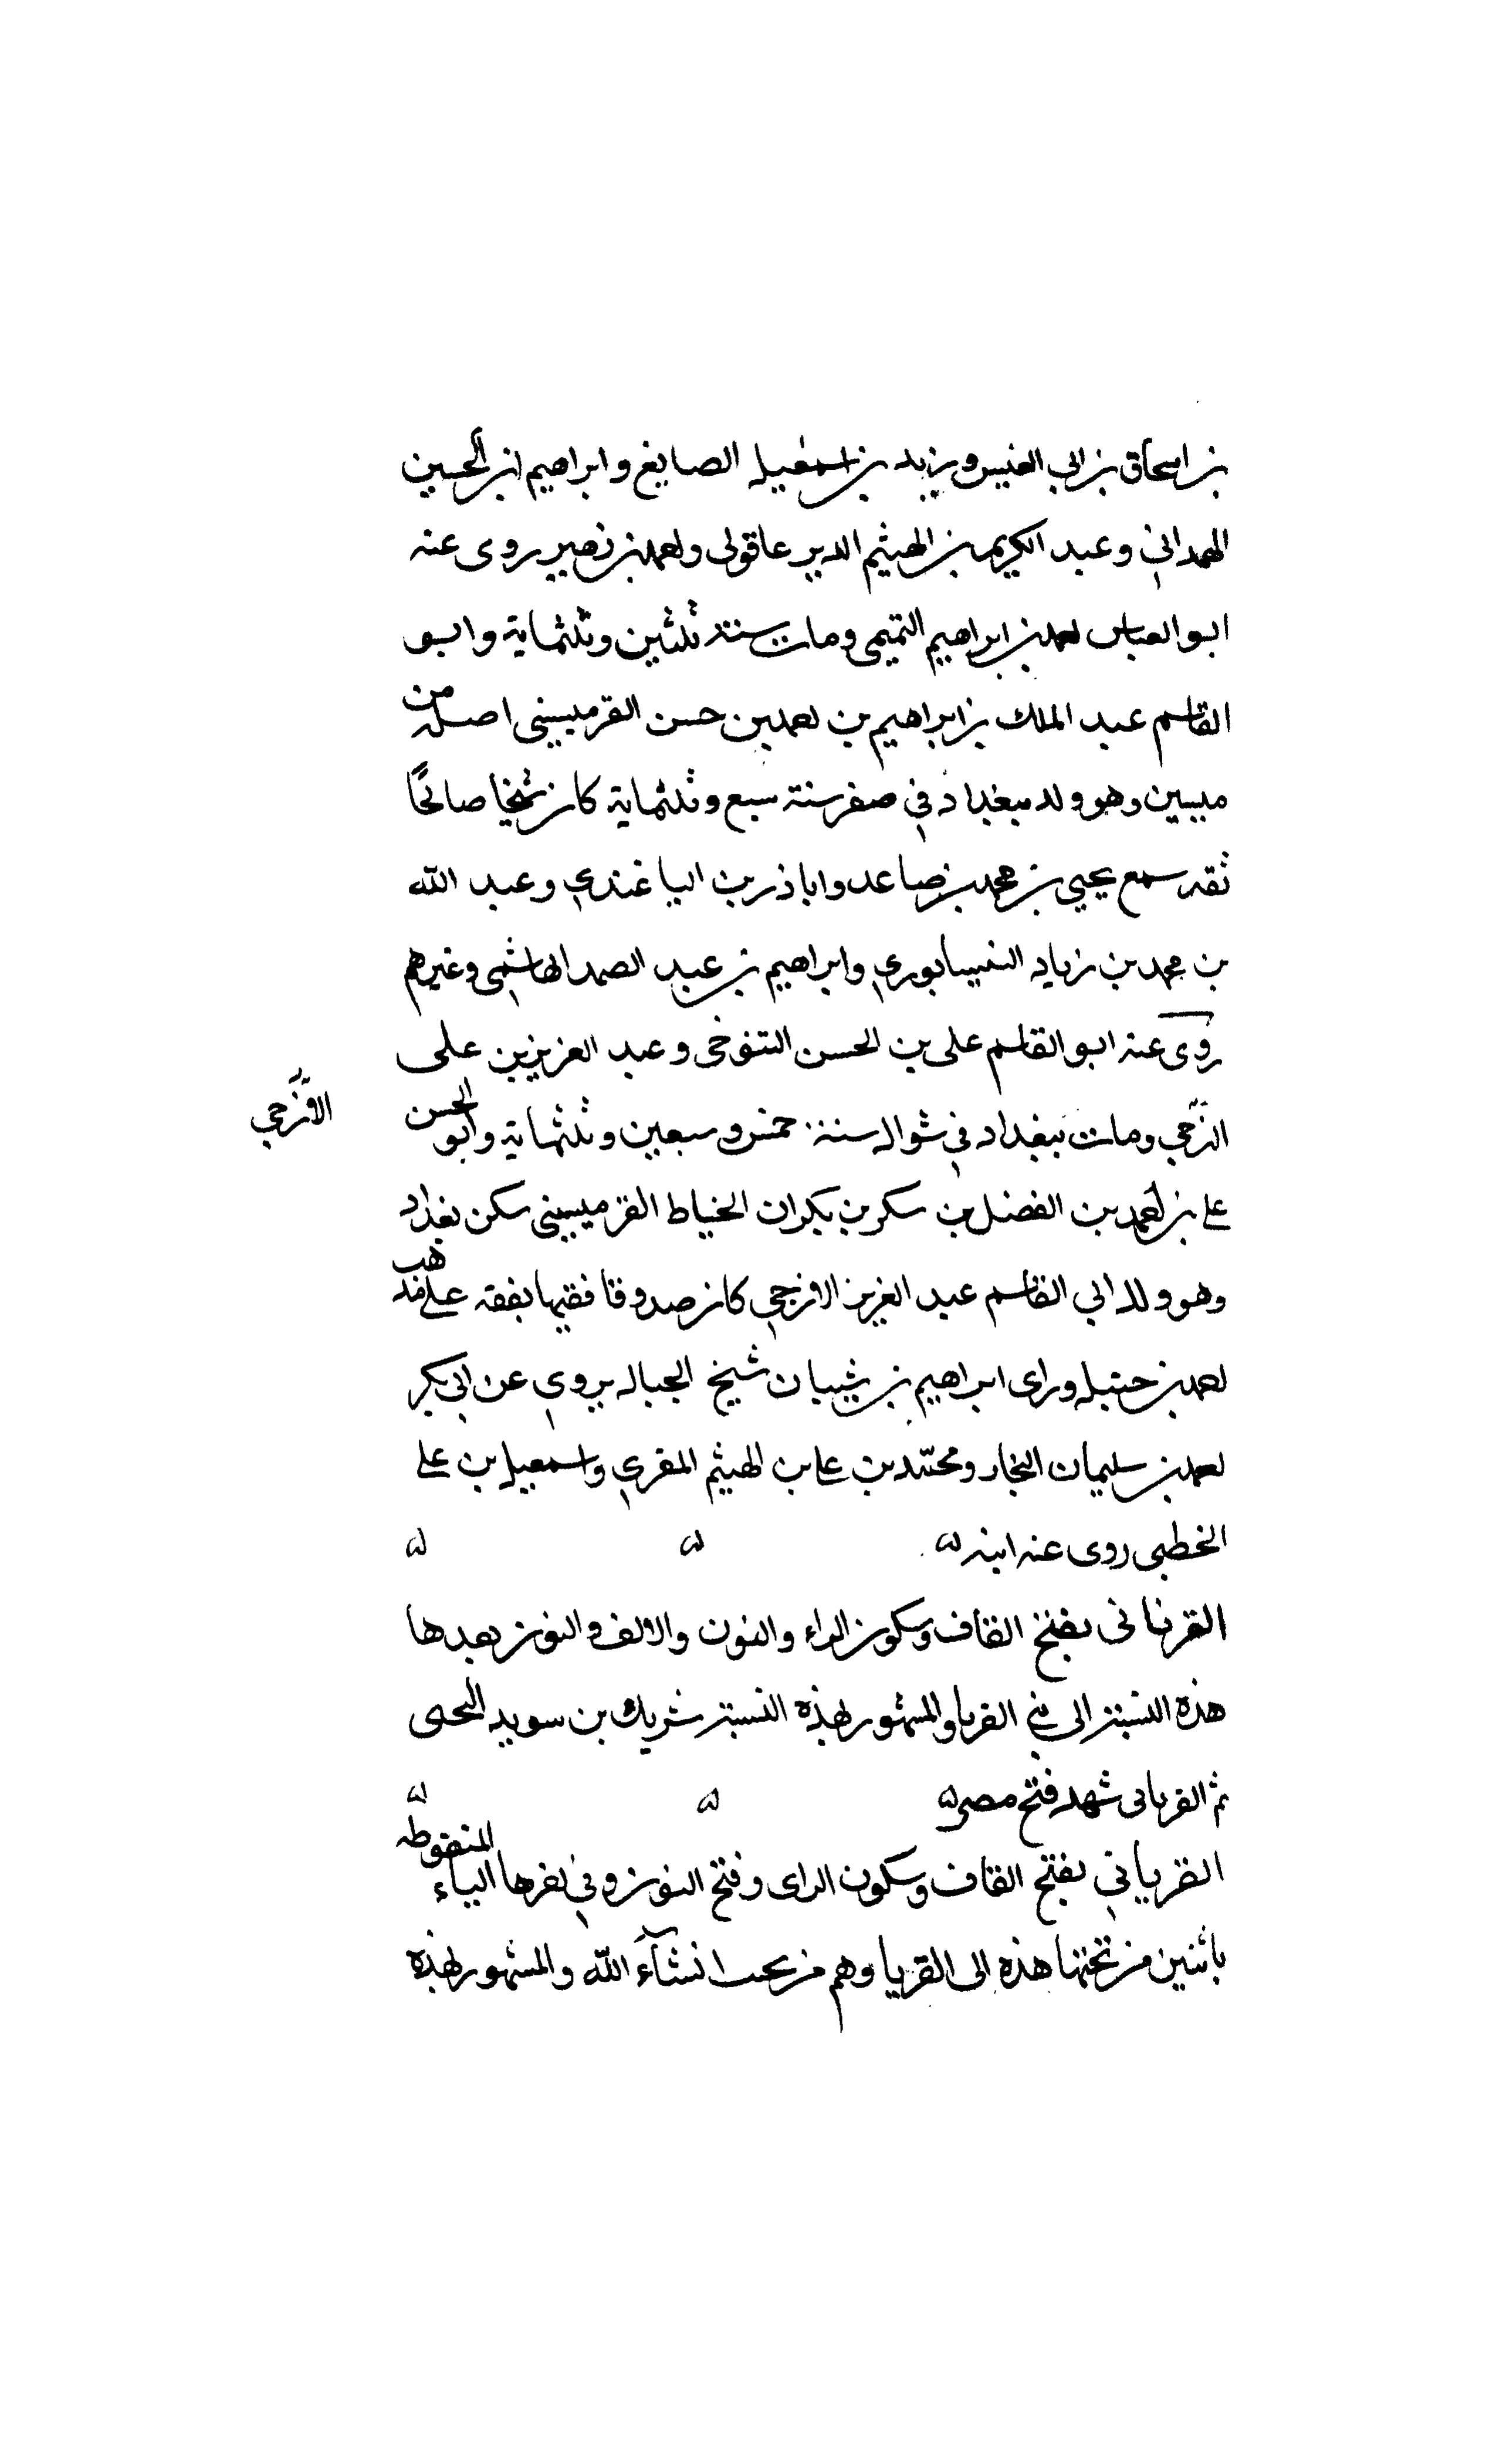 بن اسحاق بن ابي العنبس ويزيد بن اسمعيل الصايغ وابراهيم بن الحسين
الهمداني وعبد الكريم بن الهيثم الدير عاقولى واحمد بن نصير روى عنه
ابو العباس احمد بن ابراهيم التميمى ومات سنة ثلثين وثلثماية وابو
القاسم عبد الملك بن ابراهيم بن احمد بن حسن القرميسينى اصله من
ميسين وهو ولد ببغداد في صفر سنة سبع وثلثماية كان شيخا صالحًا
ثقه سمع يحيي بن محمد بن صاعد وابا ذر بن الباغندي وعبد الله
بن محمد بن زياد النيسابوري وابراهيم بن عبد الصمد الهاشمى وغيرهم
روى عنه ابو القاسم على بن الحسن التنوخى وعبد العزيز بن على
الازجي
الزجي ومات ببغداد في شوال سنة خمس وسبعين وثلثماية وابو الحسن
على بن احمد بن الفضل بن سكر بن بكران الخياط القرميسينى سكن بغداد
وهو والد ابي القاسم عبد العزيز الازجي كان صدوقا فقيها تفقه على مذهب
احمد بن حنبل وراى ابراهيم بن شيبان شيخ الجبال يروي عن ابي بكر
احمد بن سليمان النجار ومحمد بن على بن الهيثم المقري واسمعيل بن على
الخطبى روى عنه ابنه ۵ ۵ ۵
القرنانى بفتح القاف وسكون الراء والنون والالف والنون بعدها
هذه النسبة الى بني القرنا والمشهور بهذه النسبة شريك بن سويد
ثم القرنانى شهد فتح مصر ۵ ۵ ۵
القريانى بفتح القاف وسكون الراى وفتح النون وفي اخرها الياء المنقوطه
باثنين من تحتها هذه الى القريا وهم من انشآء الله والمشهور بهذه